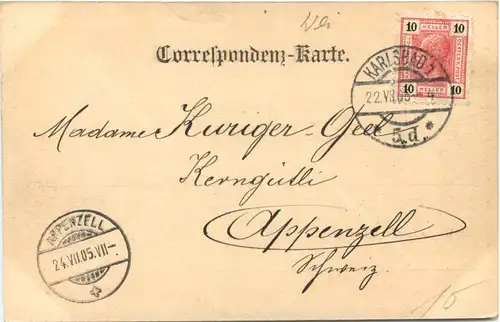 10 HELLER 10
10 10
Correspondenz-Karte.
KARLSBAD 1
22.VII.05
* 5.d. *
Madame Kuriger-Geel
Kerngütli
Appenzell
Schweiz
APPENZELL
24.VII.05.VII-